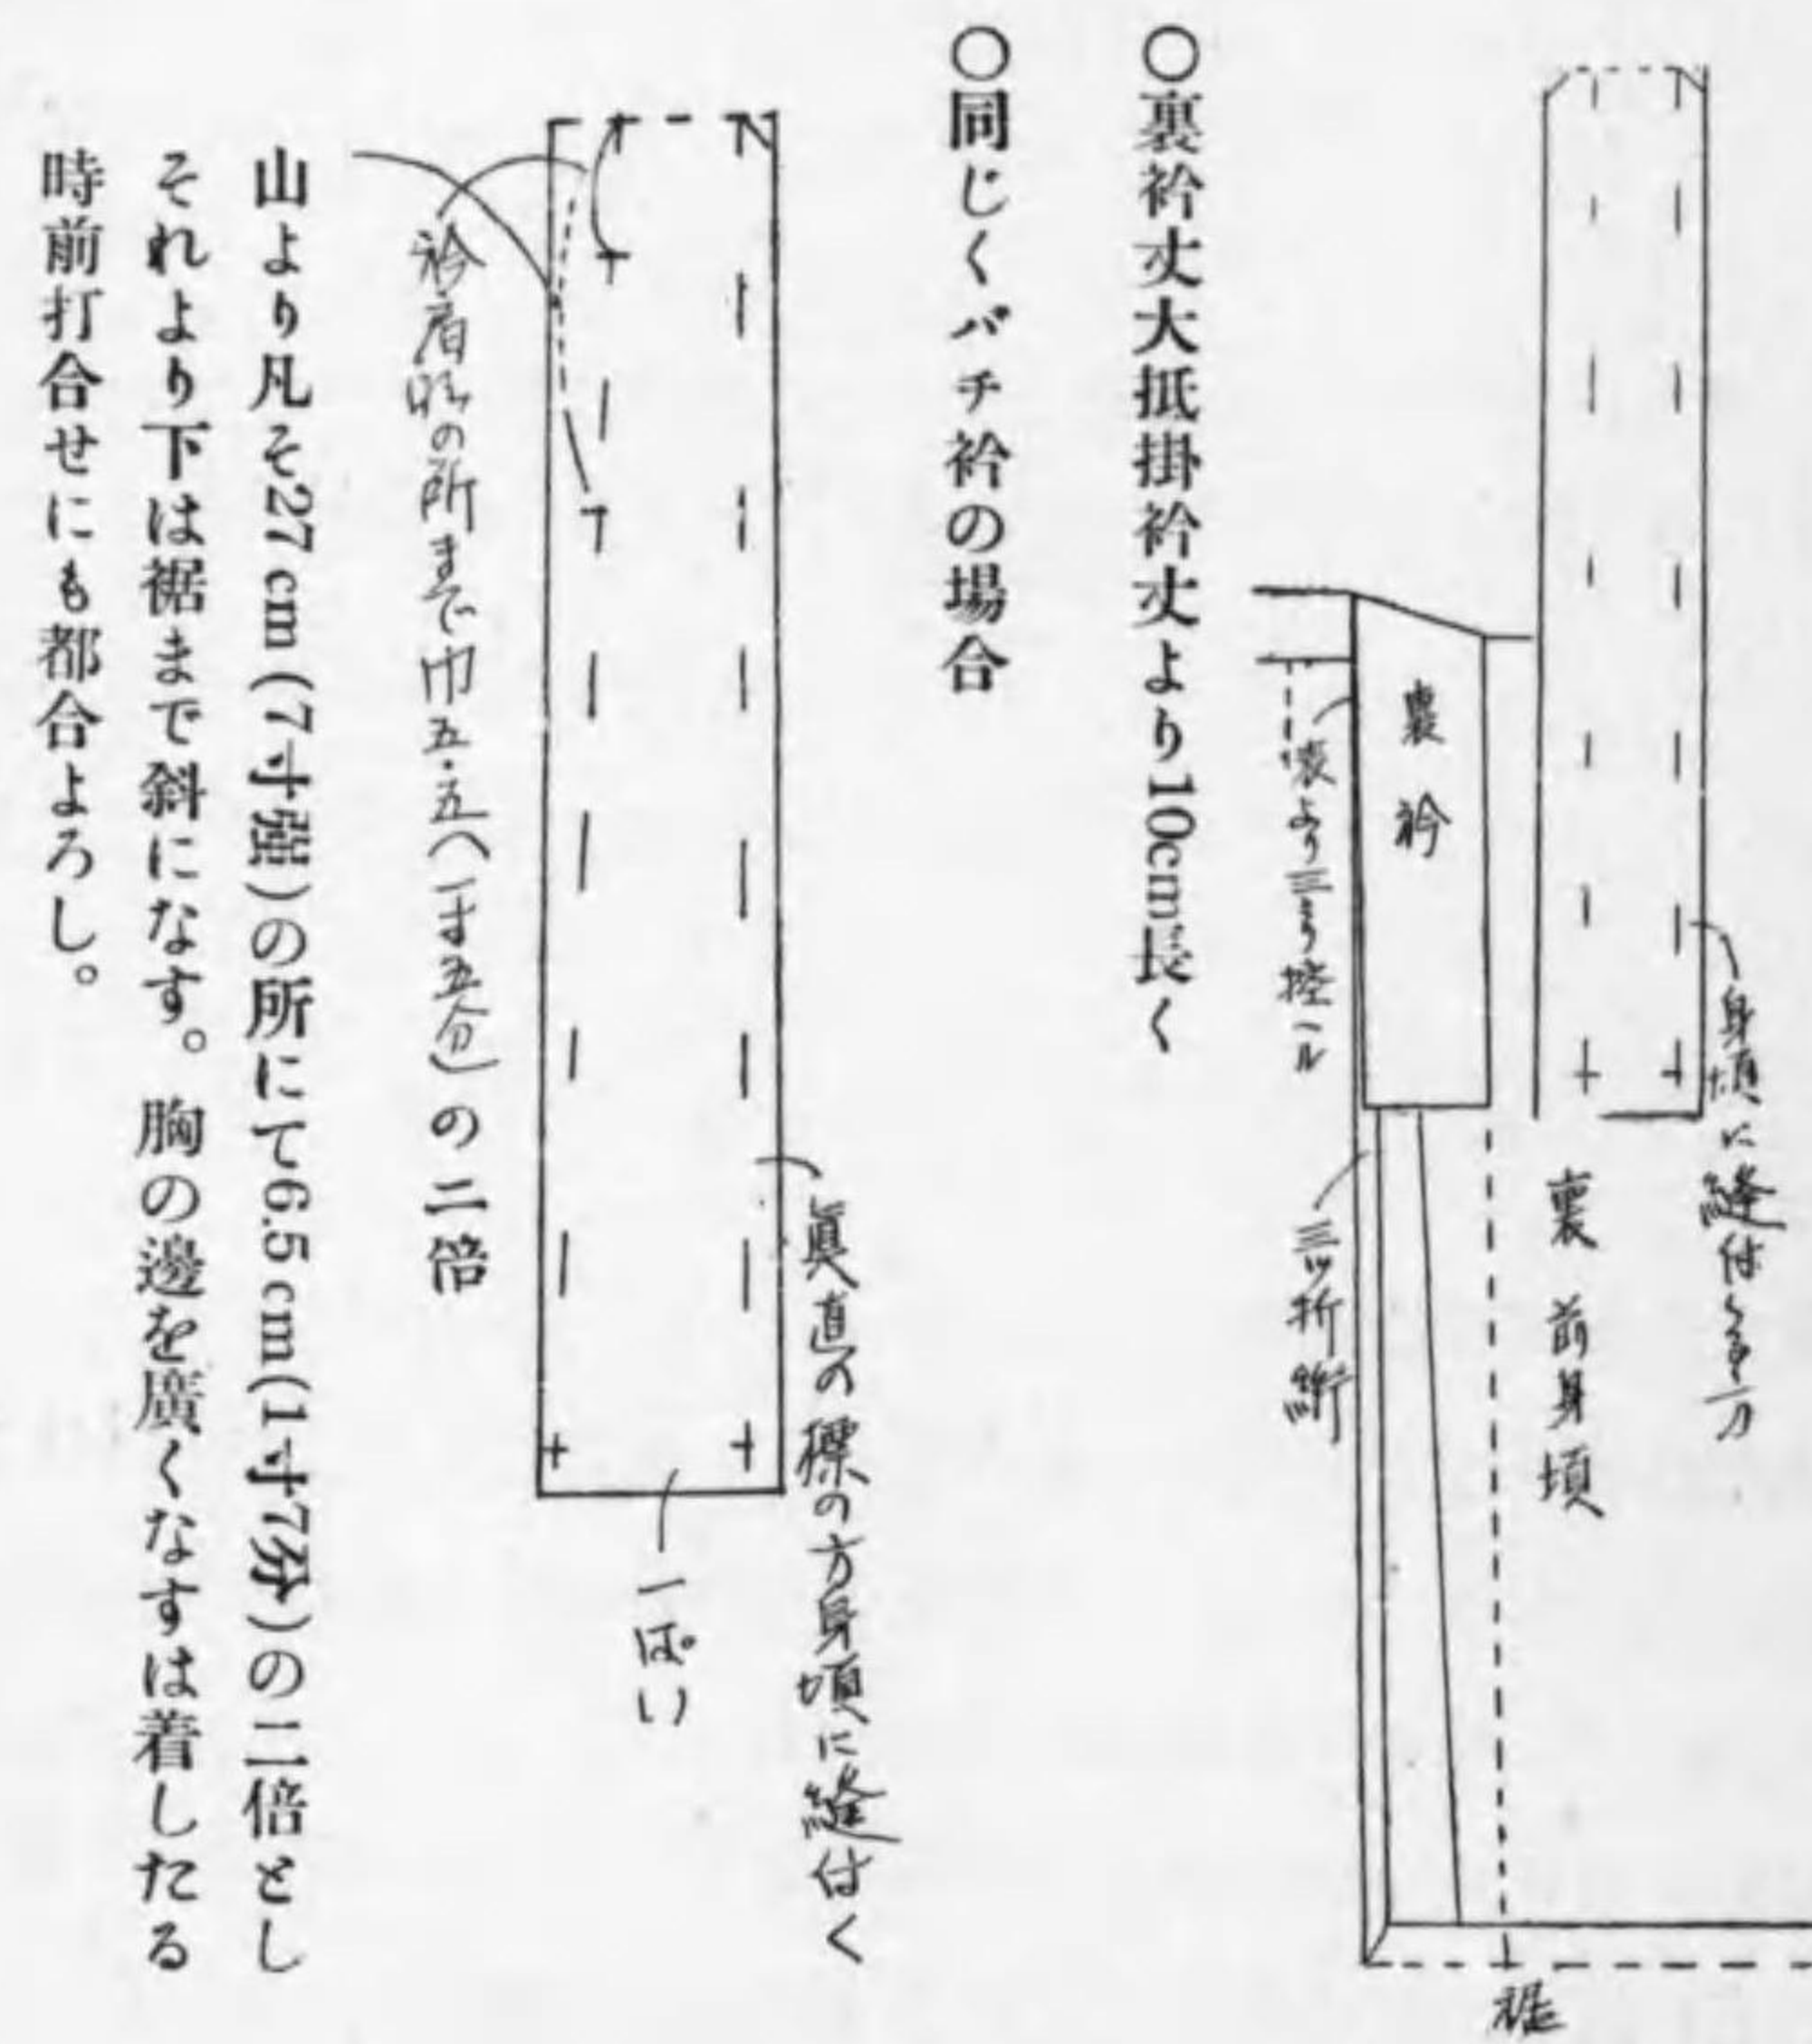 身頃に縫付くる方
裏前身頃
裏衿
裏より三ミリ控へル
三ッ折絎
裾
〇裏衿丈大抵掛衿丈より10cm長く
〇同じくバチ衿の場合
眞直の標の方身頃に縫付く
一ぱい
衿肩明の所まで巾五・五(一寸五分)の二倍
山より凡そ27cm(7寸强)の所にて6.5cm(1寸7分)の二倍とし
それより下は裾まで斜になす。胸の邊を廣くなすは着したる
時前打合せにも都合よろし。